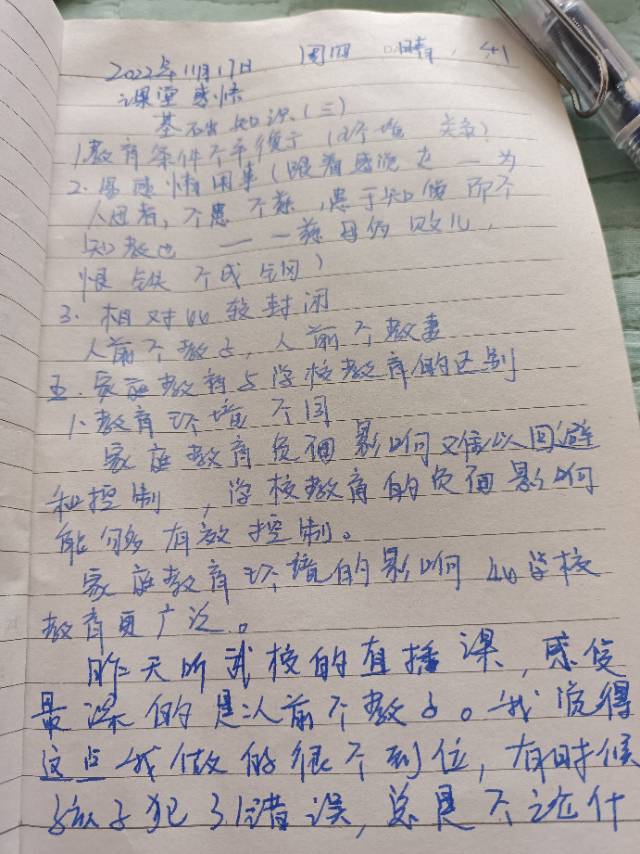 2022年11月17日 周四 晴
课堂感悟
基础知识(三)
1.教育条件不平衡了(环境 关系)
2.易感情用事(跟着感觉走——为
人母者,不患不慈,患于知爱而不
知教也——慈母多败儿,
恨铁不成钢)
3.相对比较封闭
人前不教子,人前不教妻
五.家庭教育与学校教育的区别
1.教育环境不同
家庭教育负面影响难以回避
和控制,学校教育的负面影响
能够有效控制。
家庭教育环境的影响比学校
教育更广泛。
昨天听武校的直播课,感受
最深的是人前不教子。我觉得
这点我做的很不到位,有时候
孩子犯了错误,总是不论什